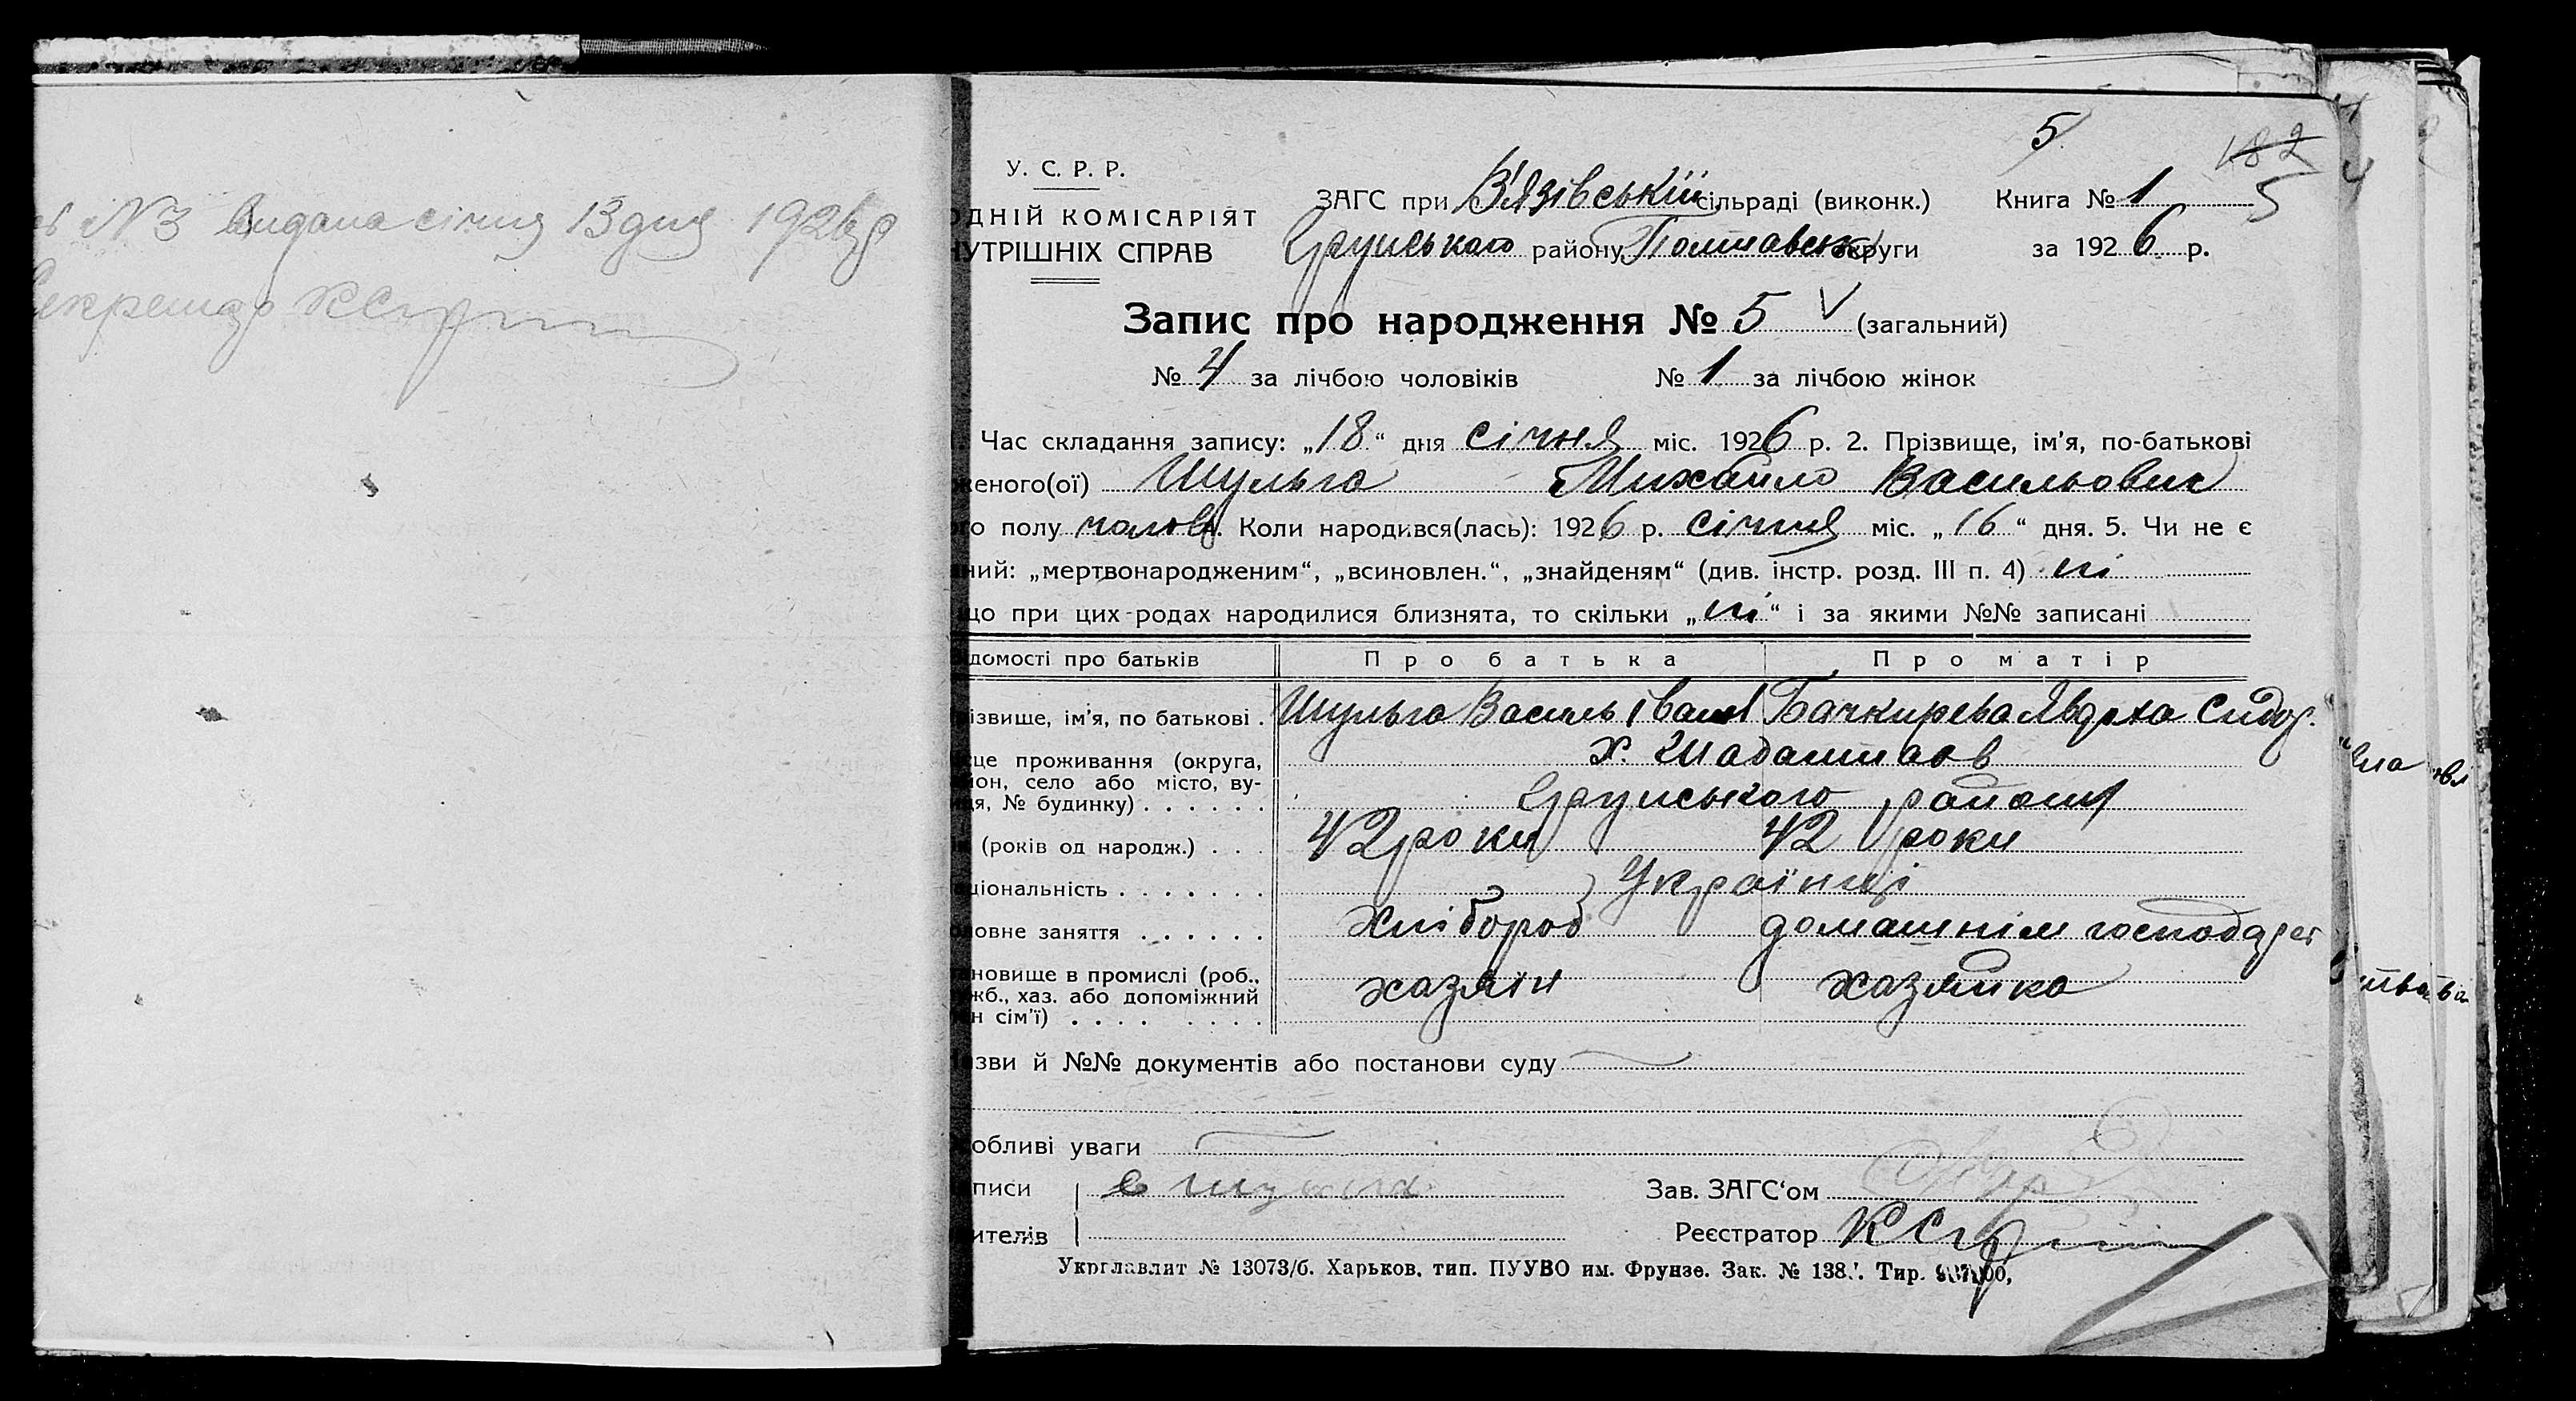 № 3 видана січня 13 дня 1926 р
Секретар
5
182
5
У. С. Р. Р.
ОДНІЙ КОМІСАРІЯТ
НУТРІШНІХ СПРАВ
ЗАГС при В'язівській сільраді (виконк.) Книга № 1
району Полтавськ округи за 1926 р.
Запис про народження № 5 V (загальний)
№ 4 за лічбою чоловіків № 1 за лічбою жінок
Час складання запису: „18“ дня січня міс. 1926 р. 2. Прізвище, ім'я, по-батькові
женого(ої) Шульга Михайло Васильович
го полу чолов. Коли народився(лась): 1926 р. січня міс. „16“ дня. 5. Чи не є
ний: „мертвонародженим“, „всиновлен.“, „знайденям“ (див. інстр. розд. III п. 4) ні
що при цих родах народилися близнята, то скільки „ні“ і за якими №№ записані
домості про батьків Про батька Про матір
ізвище, ім'я, по батькові . Шульга Василь Іван Бачкирева Явдоха Сидор.
це проживання (округа, х.
йон, село або місто, ву-
ця, № будинку) . . . . . . району
(років од народж.) . . . 42 роки 42 роки
ціональність . . . . . . . Українці
овне заняття . . . . . . Хлібороб домашнім господар
новище в промислі (роб.,
жб., хаз. або допоміжний хазяін хазяйка
н сім'ї) . . . . . . . .
азви й №№ документів або постанови суду
обливі уваги
писи Зав. ЗАГС'ом
ителів Реєстратор
Укрглавлит № 13073/б. Харьков, тип. ПУУВО им. Фрунзе. Зак. № 138 Тир.